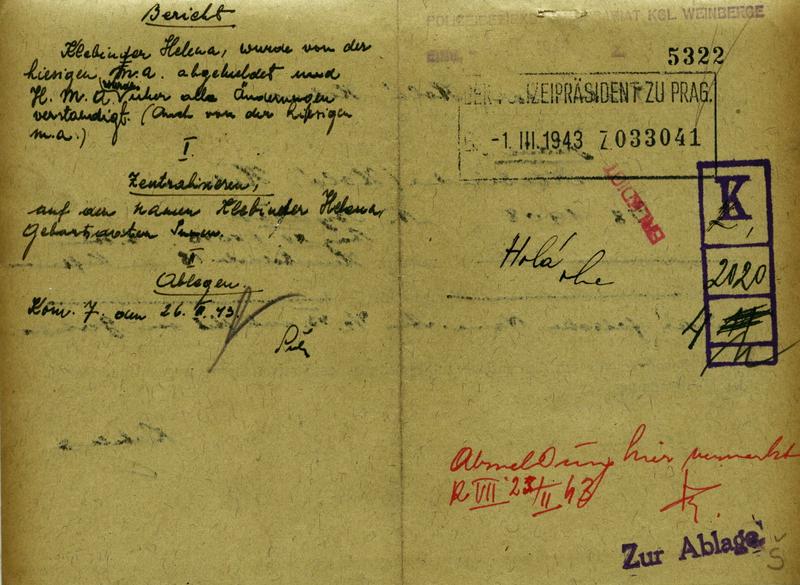 Bericht
Klebinder Helena, wurde von der
hiesigen m.a. abgemeldet und
H. M. A. wurde über alle Änderungen
verständigt. (Auch von der hiesigen
m.a.)
I.
Zentralisieren,
auf den Namen Klebinder Helena,
Geburtsdaten
II
Ablegen.
Kom. 7. den 26. II. 43
POLIZEIBEZIRKSKOMMISSARIAT KGL. WEINBERGE
5322
DER POLIZEIPRÄSIDENT ZU PRAG.
-1. III. 1943 Z 033041
ERLEDIGT
K
2020
4
Holá
ohe
Abmeldung hier vermerkt
R VII 23/II 43
Zur Ablage
Š